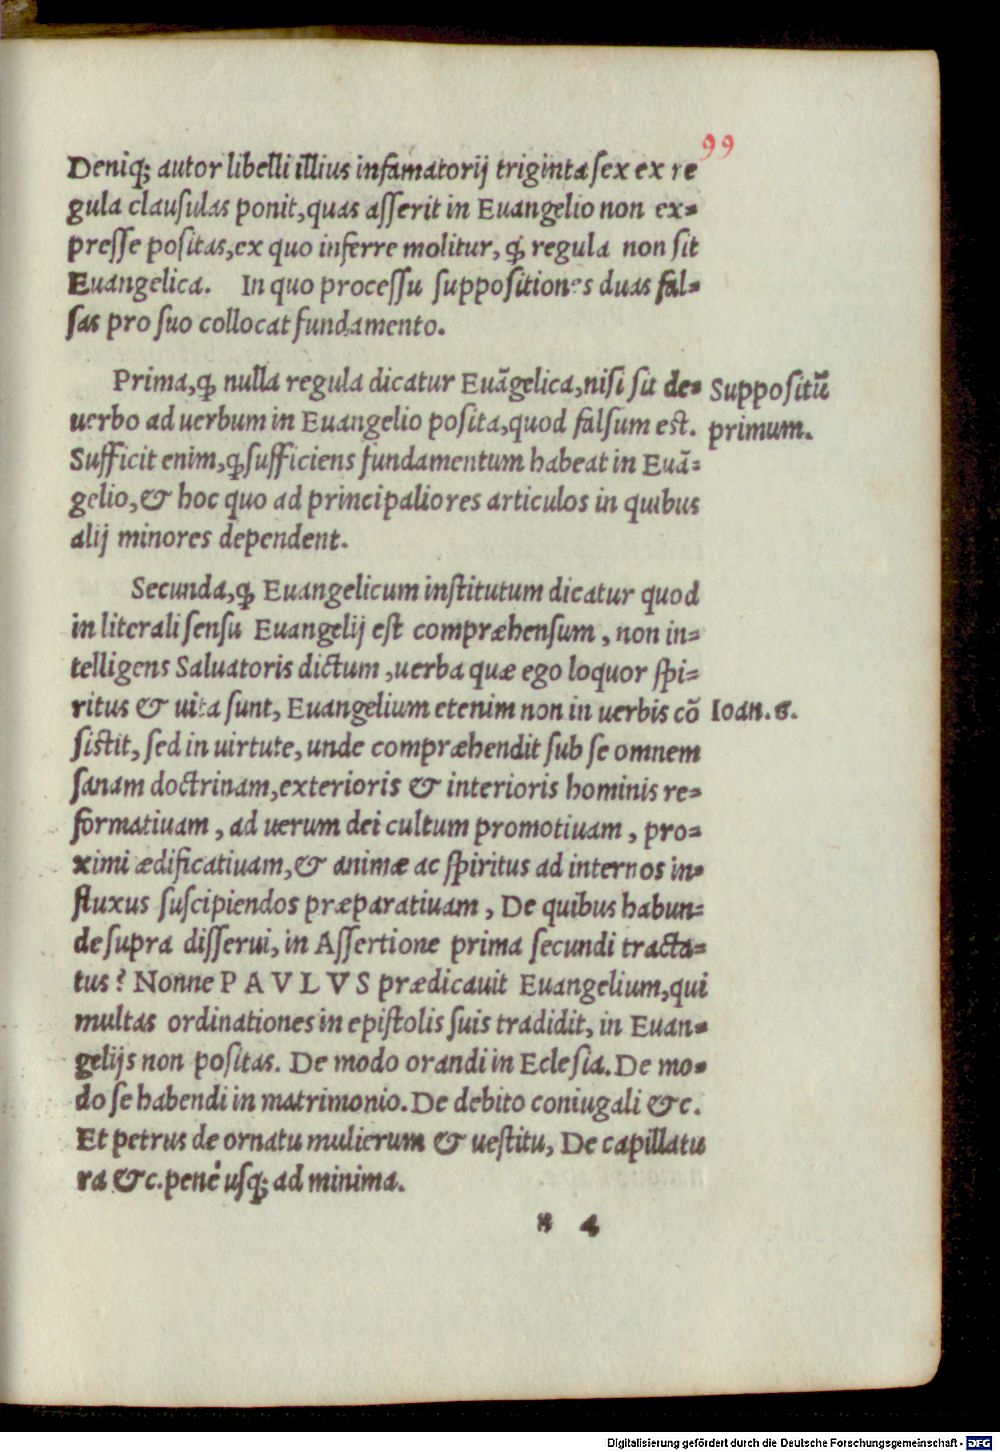 99
Deniq; autor libelli illius infamatorij triginta sex ex re
gula clausulas ponit, quas asserit in Euangelio non ex-
presse positas, ex quo inferre molitur, ꝙ regula non sit
Euangelica. In quo processu suppositiones duas fal-
sas pro suo collocat fundamento.
Prima, ꝙ nulla regula dicatur Euãgelica, nisi sit de- Suppositũ
uerbo ad uerbum in Euangelio posita, quod falsum est. primum.
Sufficit enim, ꝙ sufficiens fundamentum habeat in Euã-
gelio, & hoc quo ad principaliores articulos in quibus
alij minores dependent.
Secunda, ꝙ Euangelicum institutum dicatur quod
in literali sensu Euangelij est compræhensum, non in-
telligens Saluatoris dictum, uerba quæ ego loquor spi-
ritus & uita sunt, Euangelium etenim non in uerbis cõ Ioan. 6.
sistit, sed in uirtute, unde compræhendit sub se omnem
sanam doctrinam, exterioris & interioris hominis re-
formatiuam, ad uerum dei cultum promotiuam, pro-
ximi ædificatiuam, & animæ ac spiritus ad internos in-
fluxus suscipiendos præparatiuam, De quibus habun-
de supra disserui, in Assertione prima secundi tracta-
tus? Nonne PAVLVS prædicauit Euangelium, qui
multas ordinationes in epistolis suis tradidit, in Euan-
gelijs non positas. De modo orandi in Eclesia. De mo-
do se habendi in matrimonio. De debito coniugali &c.
Et petrus de ornatu mulierum & uestitu, De capillatu
ra &c. penè usq; ad minima.
4
Digitalisierung gefördert durch die Deutsche Forschungsgemeinschaft - DFG